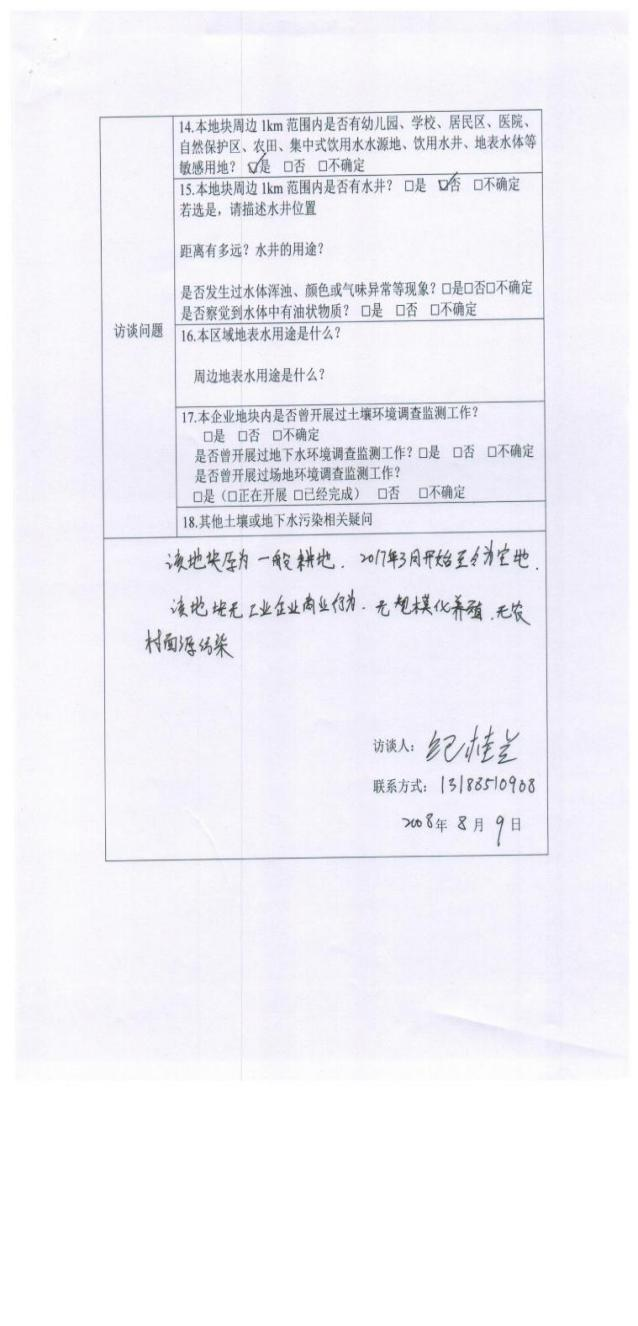 14.本地块周边 1km 范围内是否有幼儿园、学校、居民区、医院、
自然保护区、农田、集中式饮用水水源地、饮用水井、地表水体等
敏感用地？ ☑是 □否 □不确定
15.本地块周边 1km 范围内是否有水井？ □是 ☑否 □不确定
若选是，请描述水井位置
距离有多远？水井的用途？
是否发生过水体浑浊、颜色或气味异常等现象？□是□否□不确定
是否察觉到水体中有油状物质？ □是 □否 □不确定
访谈问题
16.本区域地表水用途是什么？
周边地表水用途是什么？
17.本企业地块内是否曾开展过土壤环境调查监测工作？
□是 □否 □不确定
是否曾开展过地下水环境调查监测工作？□是 □否 □不确定
是否曾开展过场地环境调查监测工作？
□是（□正在开展 □已经完成） □否 □不确定
18.其他土壤或地下水污染相关疑问
该地块原为一般耕地．2017年3月开始至今为空地．
该地块无工业企业商业行为．无规模化养殖．无农
村面源污染
访谈人：纪桂兰
联系方式：13188510908
2008年 8月 9日